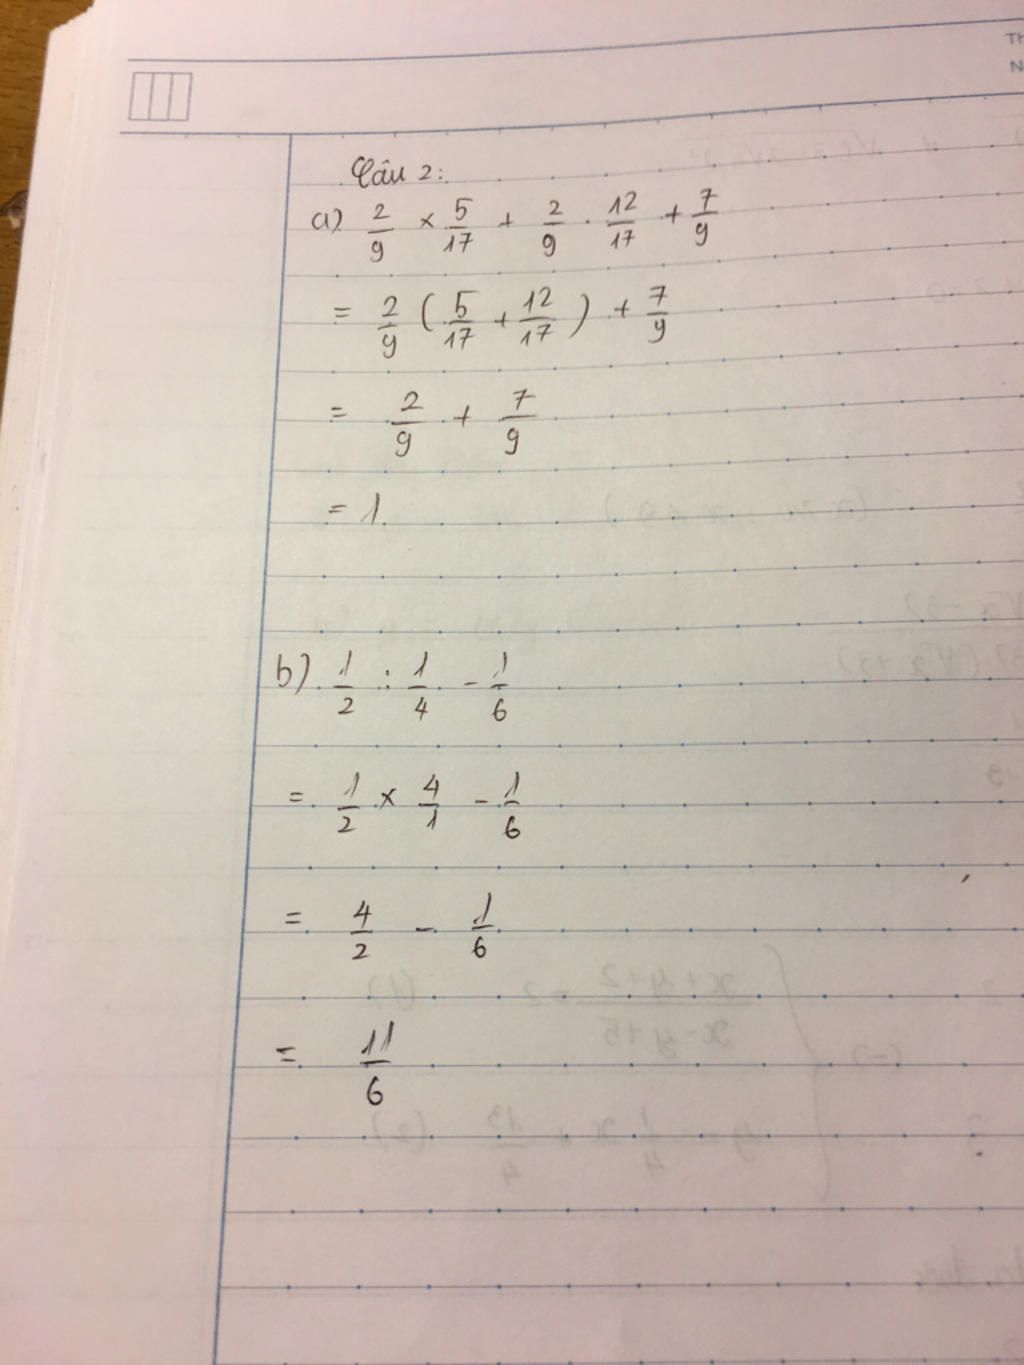 Câu 2:
a) 2/9 × 5/17 + 2/9 . 12/17 + 7/9
= 2/9 ( 5/17 + 12/17 ) + 7/9
= 2/9 + 7/9
= 1.
b) 1/2 : 1/4 - 1/6
= 1/2 × 4/1 - 1/6
= 4/2 - 1/6
= 11/6